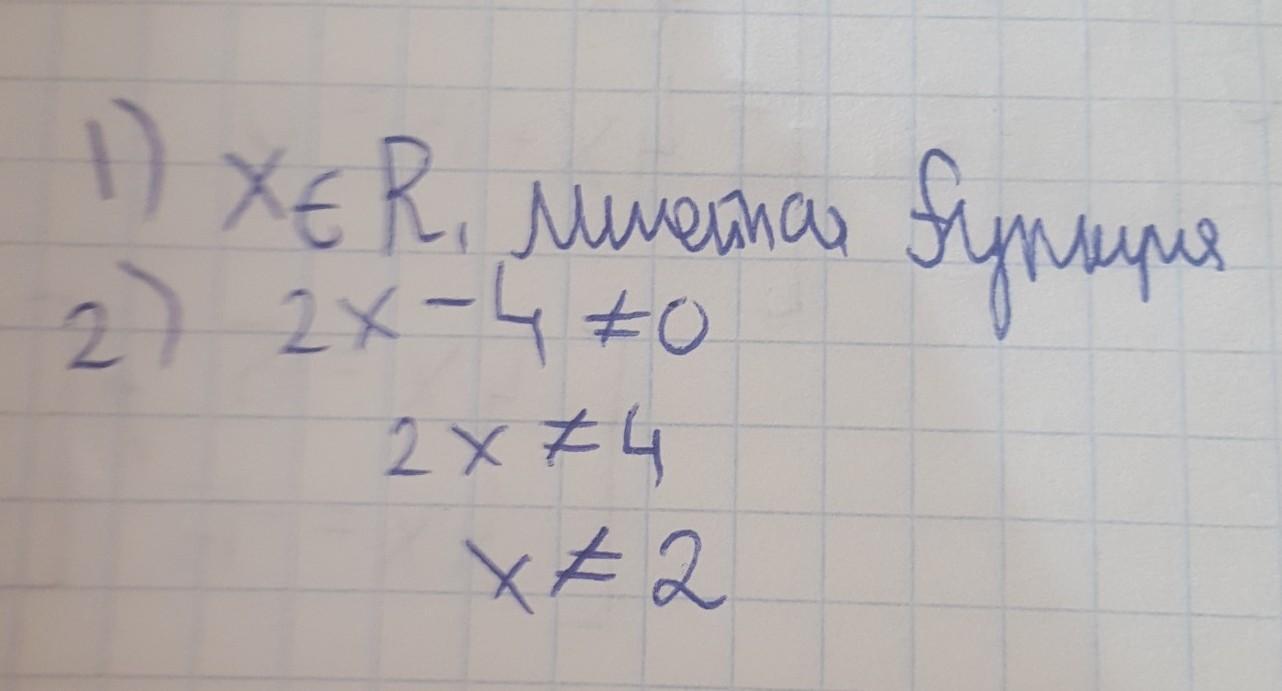 1) x∈R, линейная функция
2) 2x-4≠0
2x≠4
x≠2